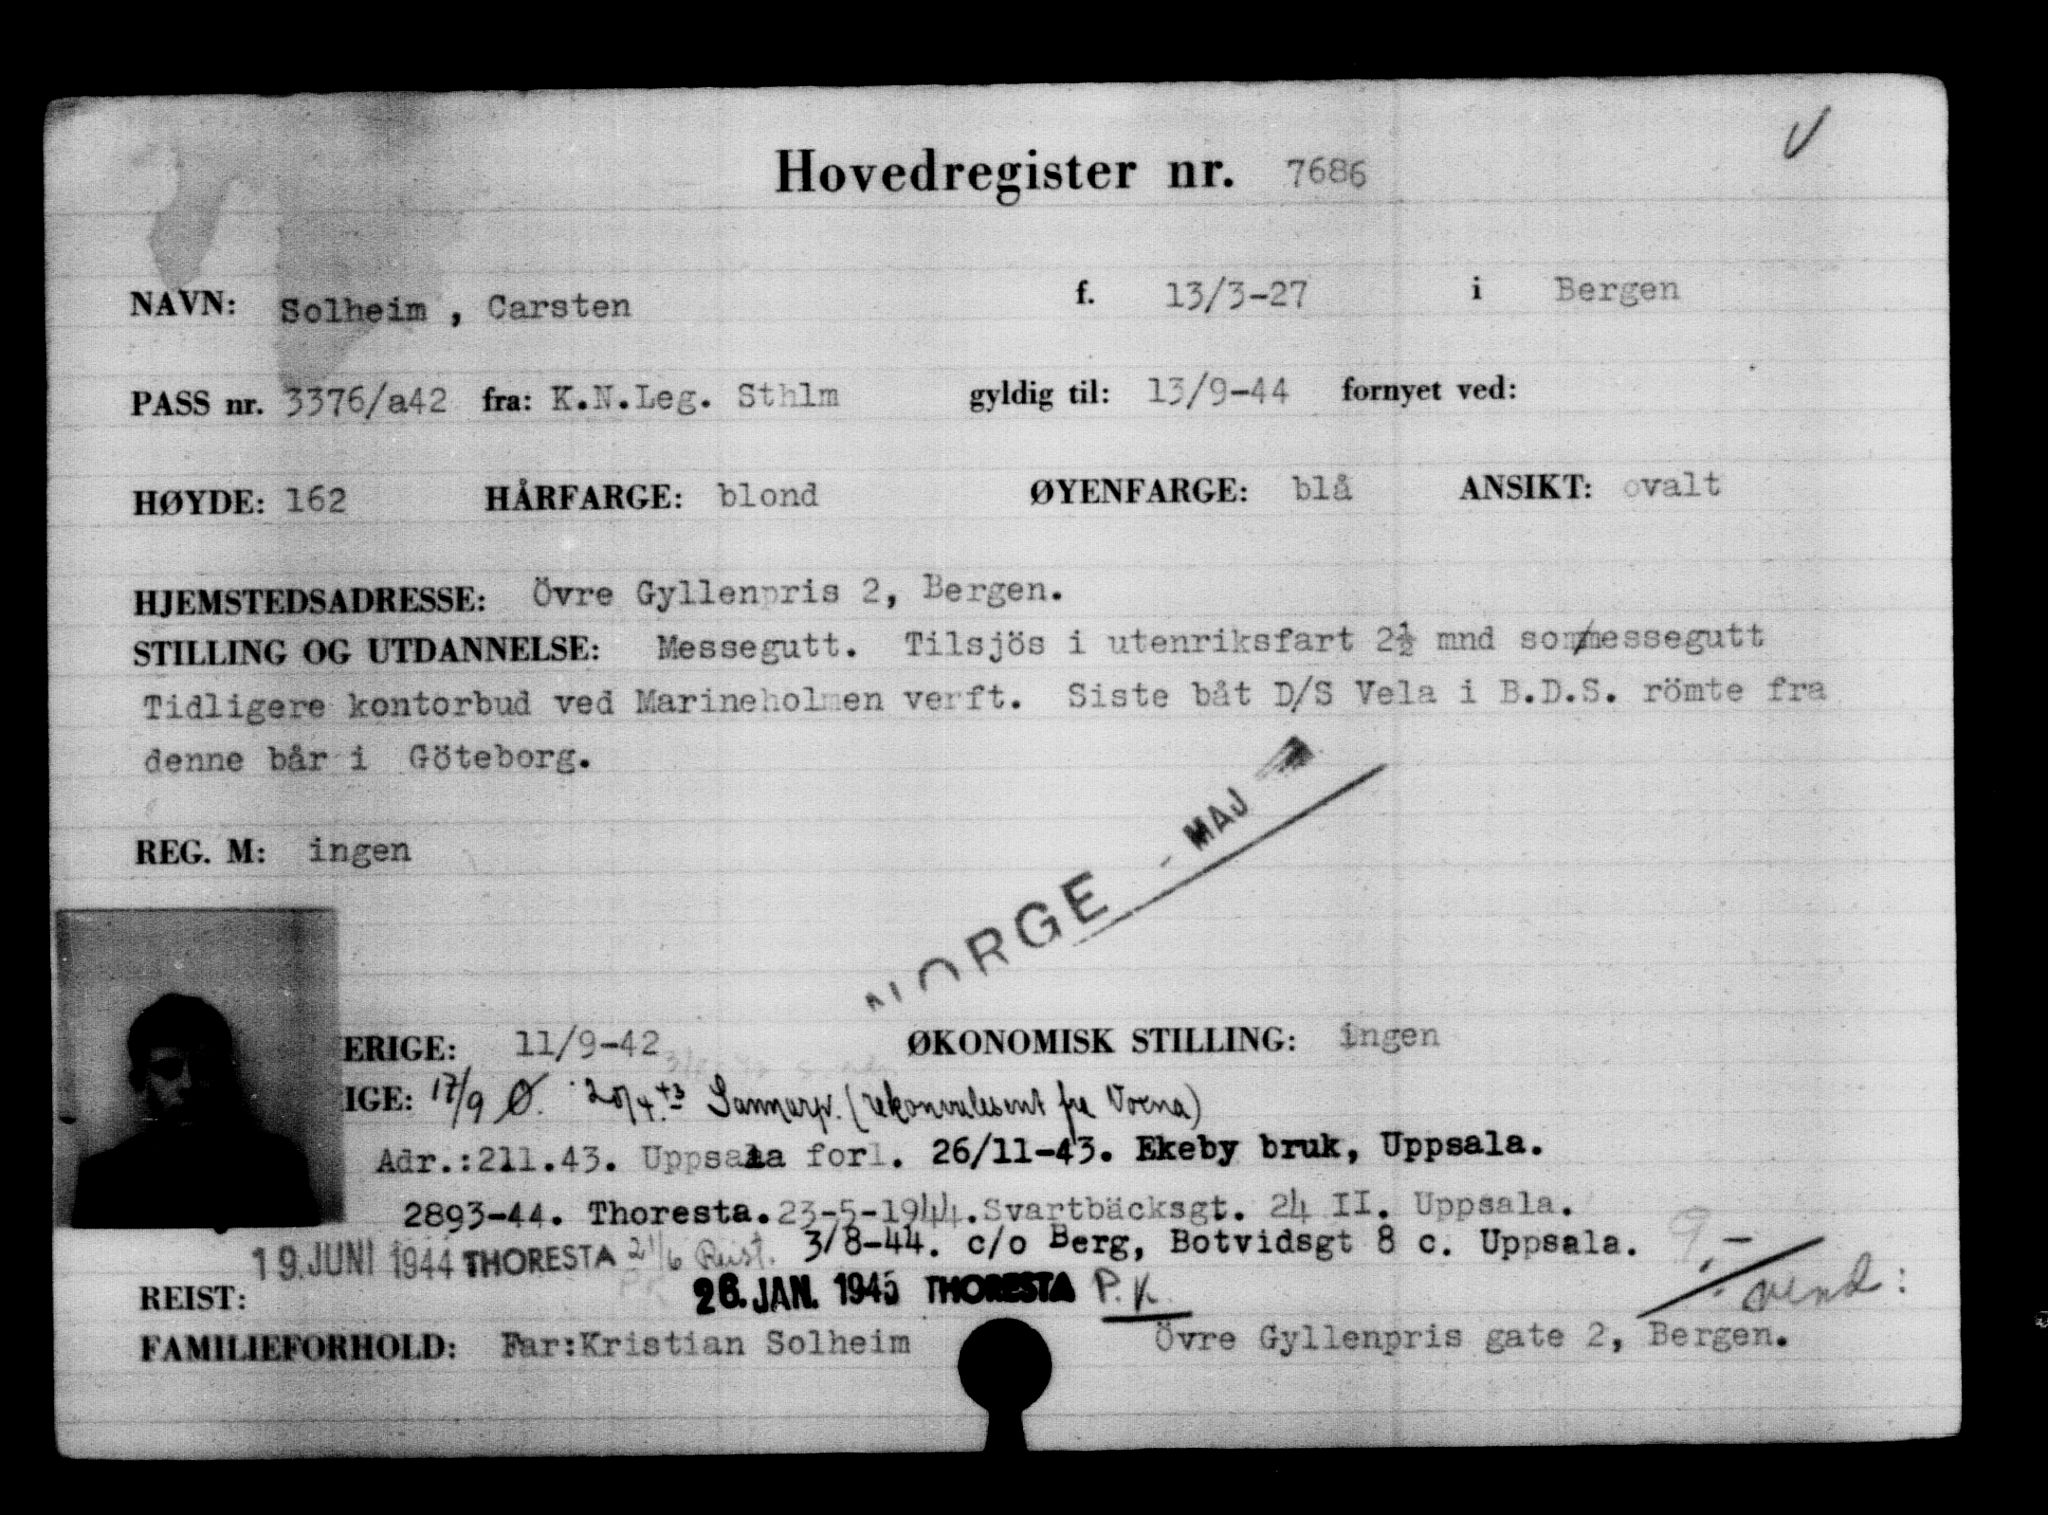 Hovedregister nr. 7686
NAVN: Solheim , Carsten f. 13/3-27 i Bergen
PASS nr. 3376/a42 fra: K.N.Leg. Sthlm gyldig til: 13/9-44 fornyet ved:
HØYDE: 162 HÅRFARGE: blond ØYENFARGE: blå ANSIKT: ovalt
HJEMSTEDSADRESSE: Övre Gyllenpris 2, Bergen.
STILLING OG UTDANNELSE: Messegutt. Tilsjös i utenriksfart 2½ mnd som/messegutt
Tidligere kontorbud ved Marineholmen verft. Siste båt D/S Vela i B.D.S. römte fra
denne bår i Göteborg.
REG. M: ingen
NORGE - MAJ
ERIGE: 11/9-42 ØKONOMISK STILLING: ingen
IGE: 17/9 Ø. 20/4.43 (rekonvalesent fra
Adr.:211.43. Uppsala forl. 26/11-43. Ekeby bruk, Uppsala.
2893-44. Thoresta. 23-5-1944. Svartbäcksgt. 24 II. Uppsala.
19. JUNI 1944 THORESTA 21/6 Reist. 3/8-44. c/o Berg, Botvidsgt 8 c. Uppsala. 9,-
REIST: 26. JAN. 1945 THORESTA P.K. vend:
FAMILIEFORHOLD: Far:Kristian Solheim Övre Gyllenpris gate 2, Bergen.